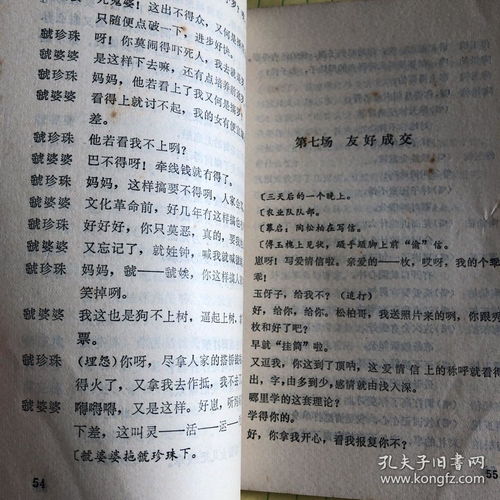 婆婆 死鬼婆！这出不得众，又何是
只随便点破一下，进步好快。
虢珍珠 呀！你莫闹得吓死人，我去就是
虢婆婆 是这样下去嘛，还有点培养前途
虢珍珠 妈妈，他若看上了我又何是搞
虢婆婆 看得上就讨不起，我的女有便
差。
虢珍珠 他若看我不上咧？
虢婆婆 巴不得呀！牵线钱就有得了。
虢珍珠 妈妈，这样搞要不得咧，人家会
虢婆婆 文化革命前，好几年有这样搞
虢珍珠 好好好，你只莫恶，真的，要我
虢婆婆 又忘记了，就姓钟，喊我就喊
虢珍珠 妈妈，虢——虢娭，你这样搞人
笑掉咧。
虢婆婆 我这也是狗不上树，逼起上树、
票。
虢珍珠 （埋怨）你呀，尽拿人家的搭
得火了，又拿我去作抵，我不去
虢婆婆 嘚嘚嘚，又是这样。好崽，听
下差，这叫灵——活——运——
〔虢婆婆拖虢珍珠下。
54
第七场 友好成交
〔三天后的一个晚上。
〔农业队队部。
〔幕启：陶松柏在写信。
〔傅玉槐上见状，蹑手蹑脚上前“偷”信。
崽呀！写爱情信啦。亲爱的——枚，哎呀，我的个乖
乖！
玉伢子，给我不？（追打）
好，给你，给你。松柏哥，我送照片来的咧，你跟死
枚和好了吧？
早就“挂筒”啦。
又逗我，你这到了顶呐，这爱情信上的称呼就看得
出，字，由多到少，感情就由浅入深。
哪里学的这套理论？
学得你的。
好，你拿我开心，看我报复你不？
55
孔夫子旧书网